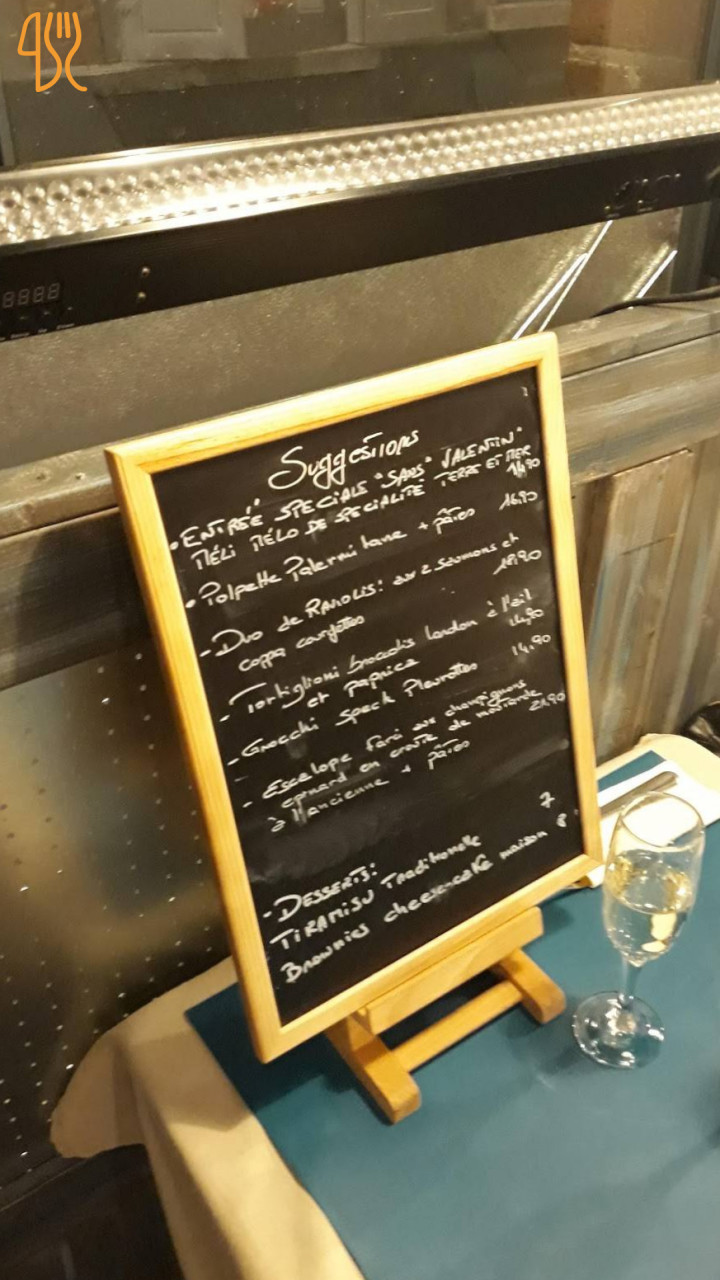 Suggestions
• "ENTRÉE" SPECIALE "SANS" VALENTIN"
MÉLI MÉLO DE SPECIALITÉ TERRE ET MER
14,90
• Polpette Palermitane + pâtes 16,90
- Duo de RAVIOLIS: aux 2 saumons et
coppa courgettes 18,90
- Tortiglioni brocolis lardon à l'ail
et paprica 14,90
- Gnocchi Speck Pleurottes 14,90
- Escalope farci aux champignons
epinard en croute de moutarde
à l'ancienne + pâtes 21,90
- DESSERTS:
TIRAMISU Traditionelle 7
Brownies cheese-cake maison 8